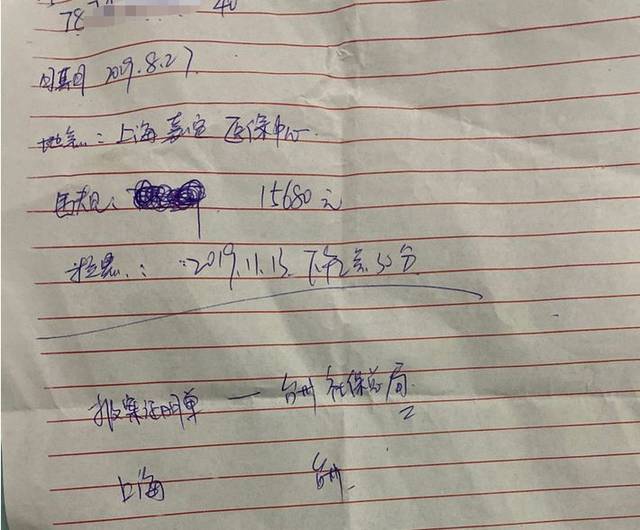 78 40
日期 2019.8.27
地点：上海嘉定医保中心
15680元
：2019.11.13 下午2点30分
报案证明单 — 台州社保分局
上海 台州